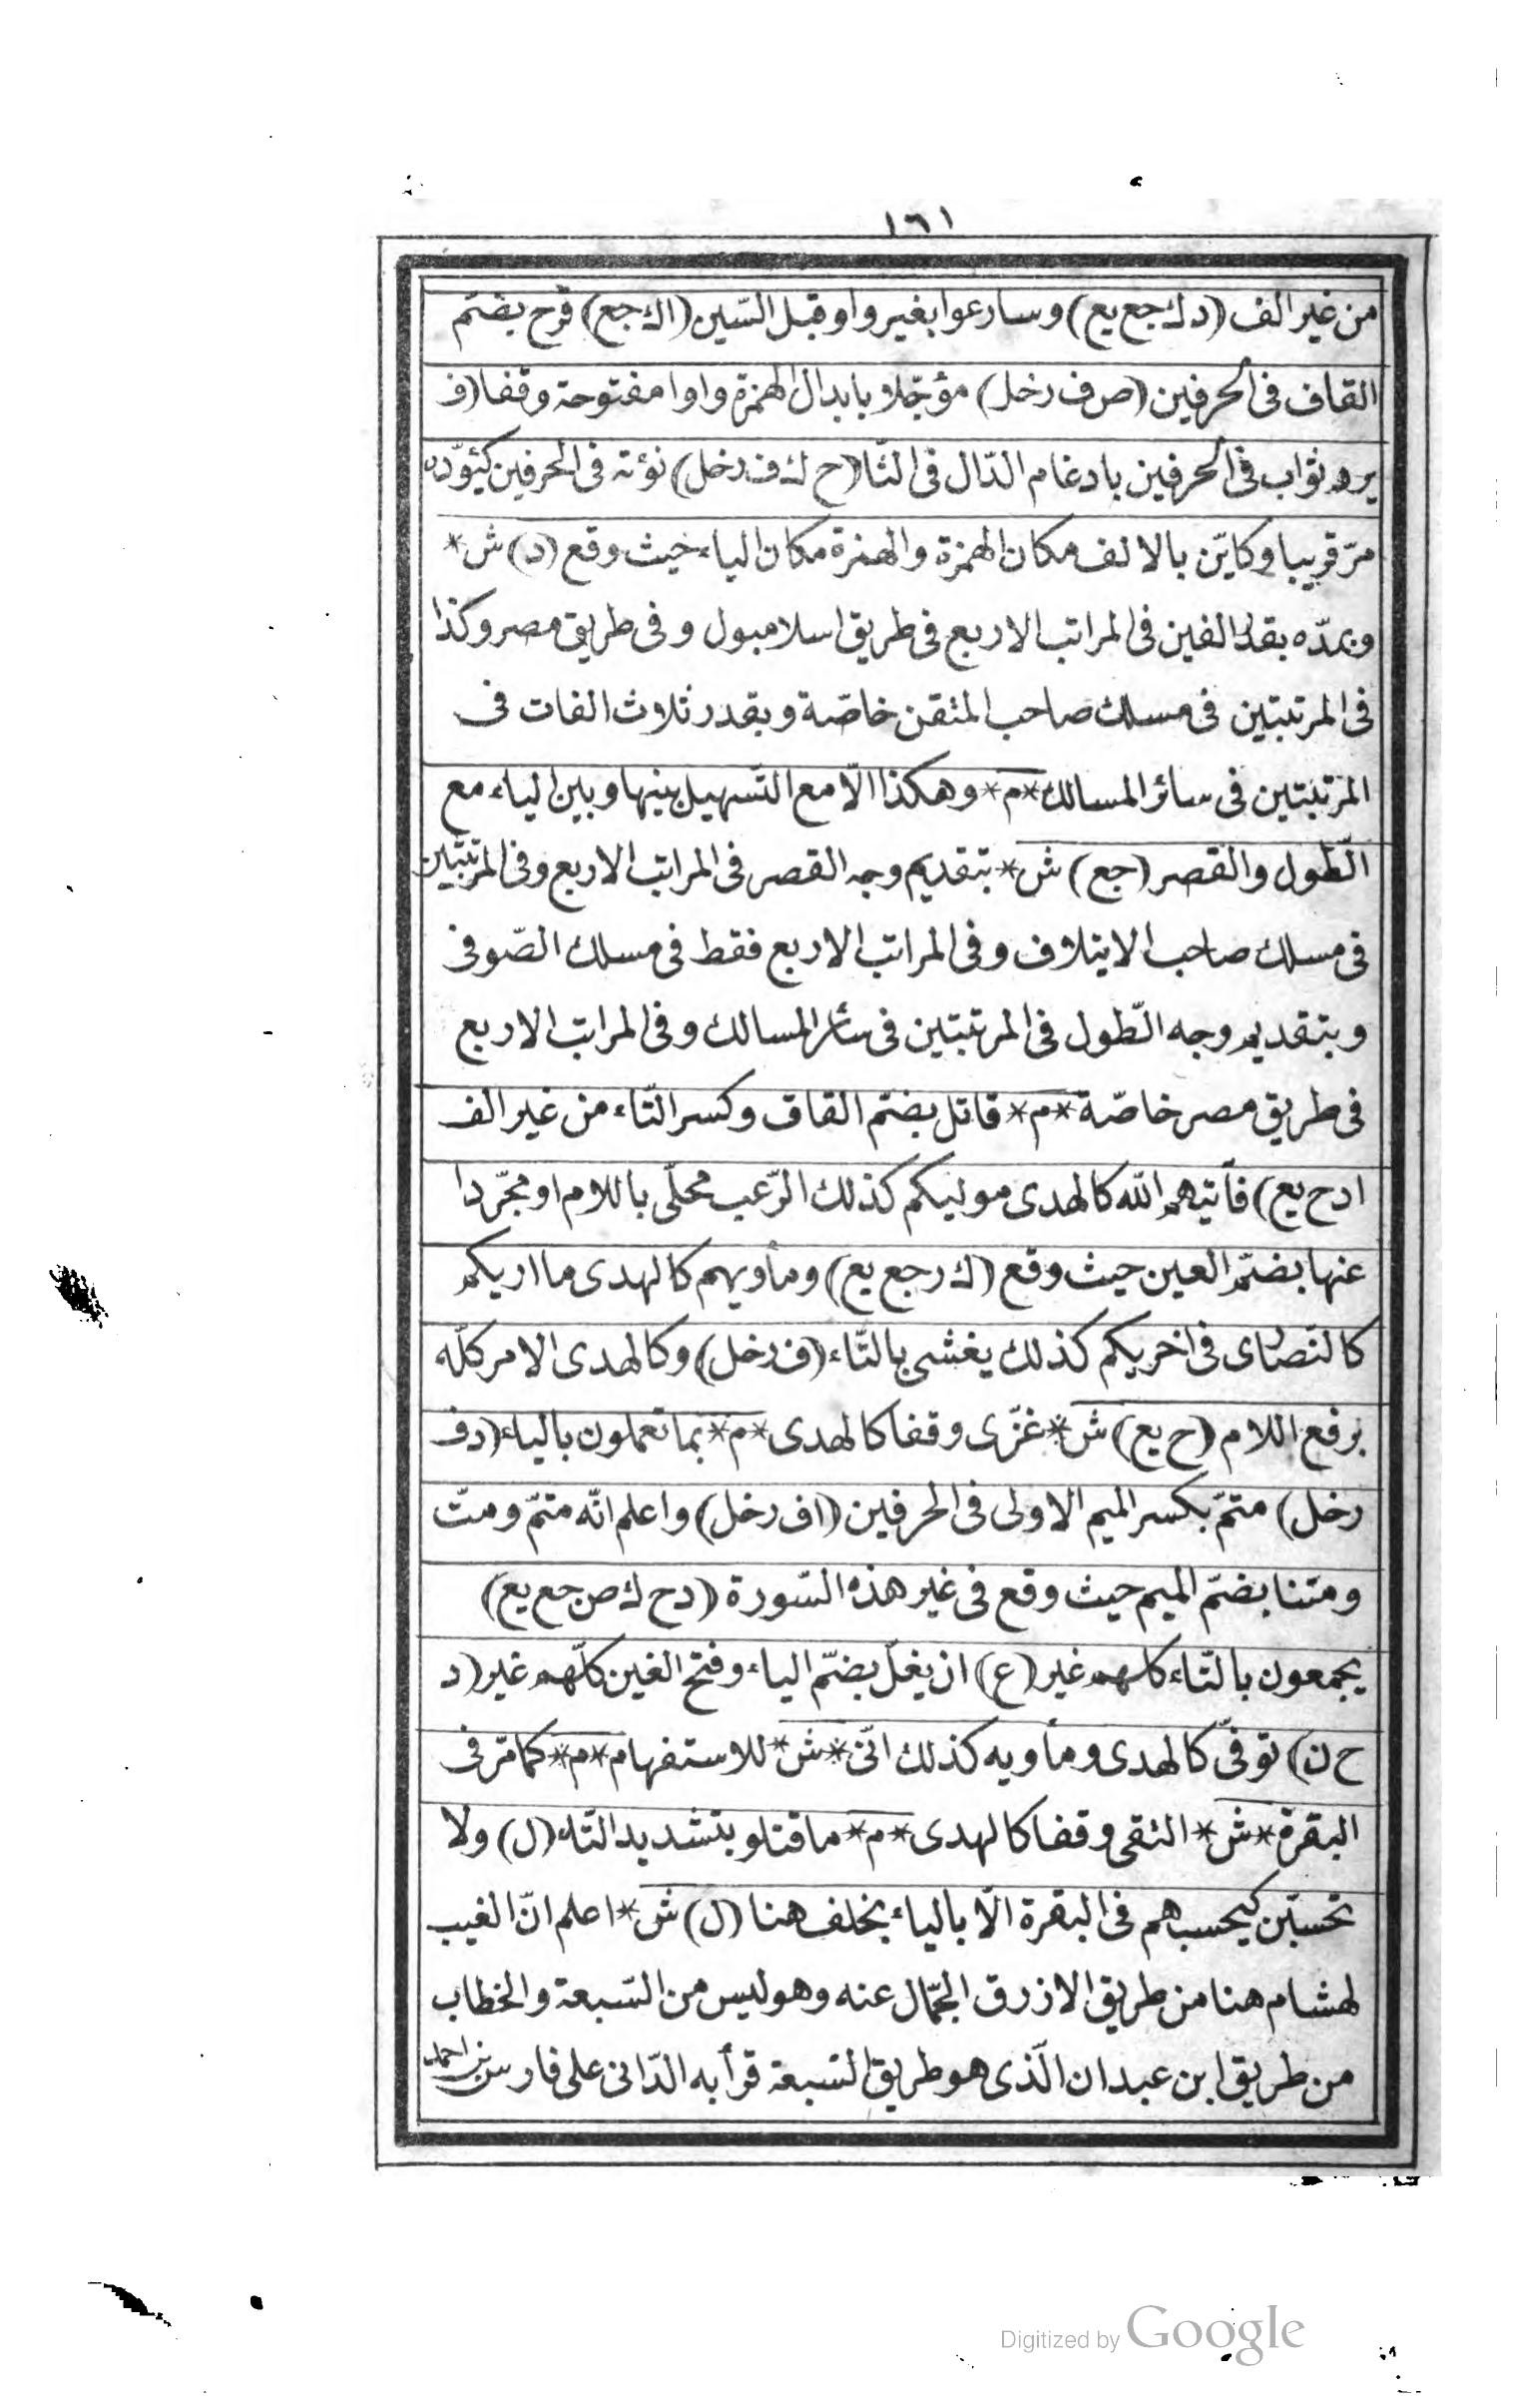 ١٦١
من غير الف (د ك جع يع) وسارعوا بغير واو قبل السّين (اك جع) قرح بضمّ
القاف فى الحرفين (ص ف رخل) مؤجّلا بابدال الهمزة واوا مفتوحة وقفا (ف
يرد ثواب فى الحرفين بادغام الدّال فى الثّا (ح ك ف رخل) نؤته فى الحرفين كيؤدّه
مرّ قريبا وكايّن بالالف مكان الهمزة والهمزة مكان الياء حيث وقع (د) ش*
ويمدّه بقدر الفين فى المراتب الاربع فى طريق اسلامبول وفى طريق مصر وكذا
فى المرتبتين فى مسلك صاحب المتقن خاصّة وبقدر ثلاث الفات فى
المرتبتين فى سائر المسالك *م* وهكذا الّا مع التّسهيل بينها وبين الياء مع
الطّول والقصر (جع) ش* بتقديم وجه القصر فى المراتب الاربع وفى المرتبتين
فى مسلك صاحب الايتلاف وفى المراتب الاربع فقط فى مسلك الصّوفى
وبتقديم وجه الطّول فى المرتبتين فى سائر المسالك وفى المراتب الاربع
فى طريق مصر خاصّة *م* قاتل بضمّ القاف وكسر التّاء من غير الف
ادح يع) فآتيهم الله كالهدى موليكم كذلك الرّعب محلّى باللام او مجرّدا
عنها بضمّ العين حيث وقع (ك رجع يع) ومأويهم كالهدى ما اريكم
كالنّصارى فى اخريكم كذلك يغشى بالتّاء (ف رخل) وكالهدى الامر كلّه
برفع اللام (ح يع) ش* غزّى وقفا كالهدى *م* بما تعملون بالياء (دف
رخل) متمّ بكسر الميم الاولى فى الحرفين (اف رخل) واعلم انّه متمّ ومتّ
ومتنا بضمّ الميم حيث وقع فى غير هذه السّورة (دح ك ص جع يع)
يجمعون بالتّاء كلهم غير (ع) ان يغلّ بضمّ الياء وفتح الغين كلّهم غير (د
ح ن) توفّى كالهدى ومأويه كذلك انّى *ش* للاستفهام *م* كما مرّ فى
البقرة *ش* التقى وقفا كالهدى *م* ما قتلو بتشديد التّاء (ل) ولا
تحسبّن كيحسبهم فى البقرة الّا بالياء بخلف هنا (ل) ش* اعلم انّ الغيب
لهشام هنا من طريق الازرق الجمّال عنه وهو ليس من السّبعة والخطاب
من طريق ابن عبدان الّذى هو طريق السّبعة قرأ به الدّانى على فارس بن احمد
Digitized by Google